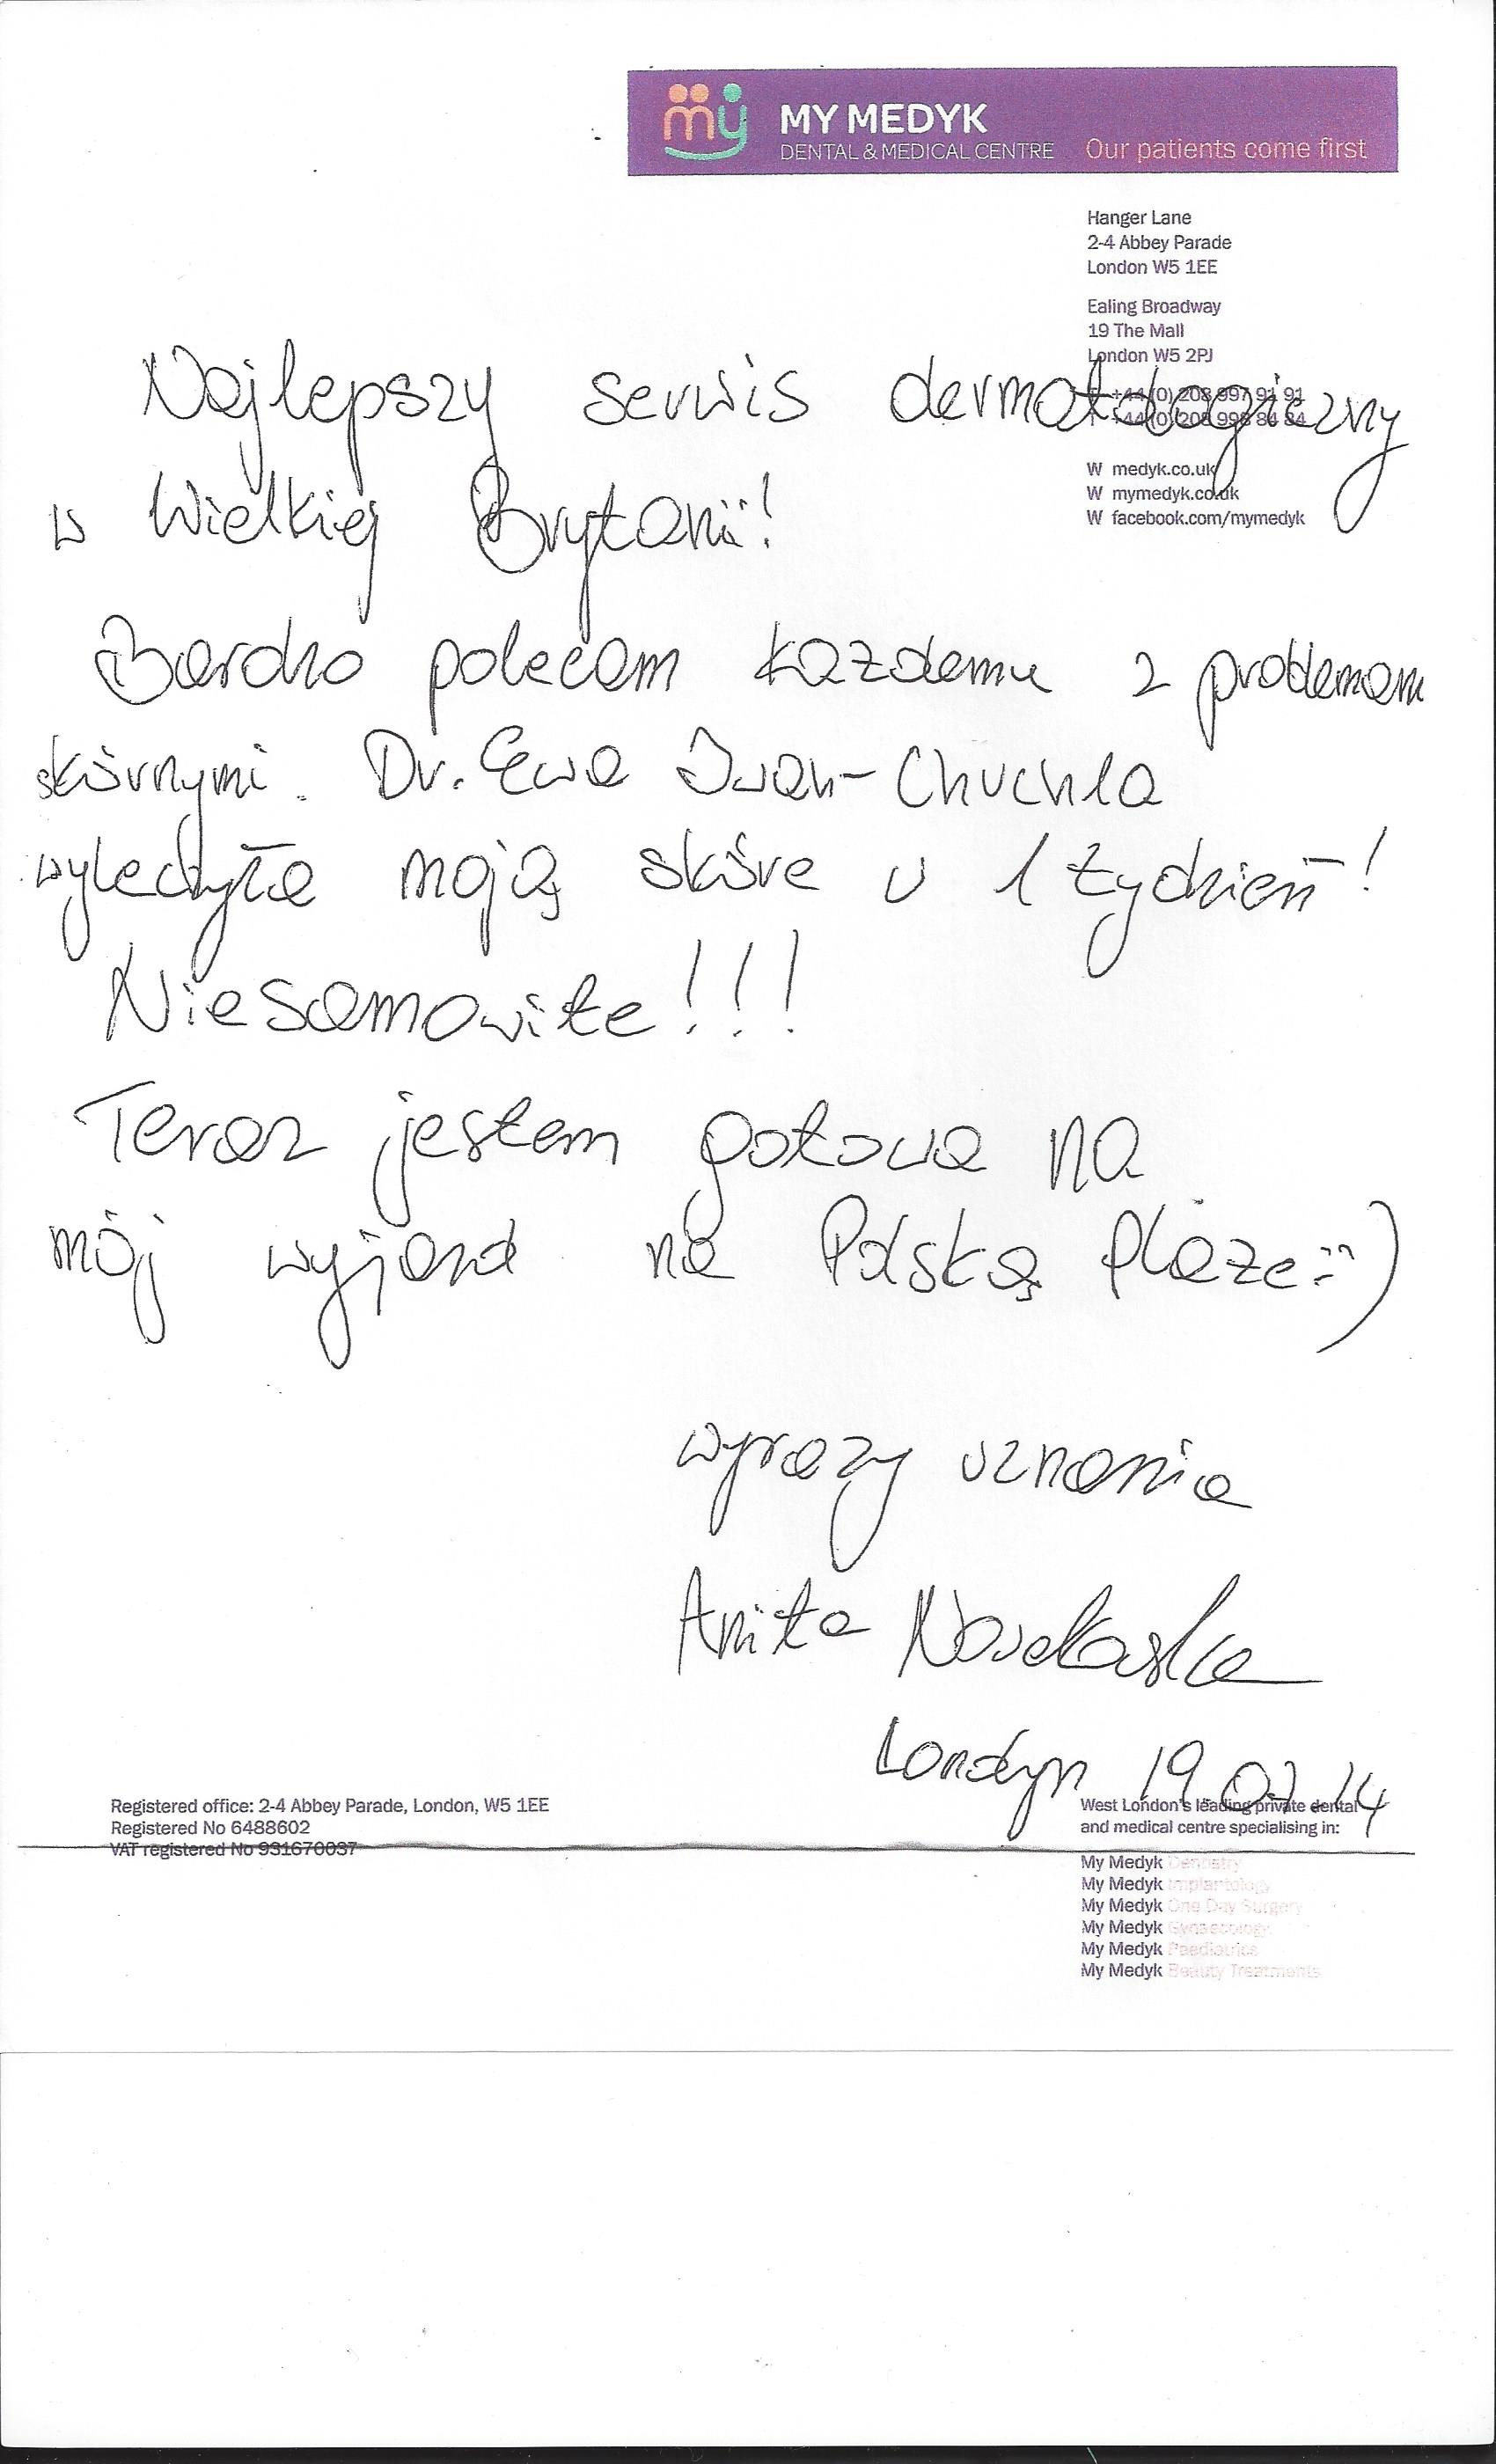 my MY MEDYK
DENTAL & MEDICAL CENTRE Our patients come first
Hanger Lane
2-4 Abbey Parade
London W5 1EE
Ealing Broadway
19 The Mall
London W5 2PJ
T +44 (0) 208 997 91 91
T +44 (0) 208 998 84 84
W medyk.co.uk
W mymedyk.co.uk
W facebook.com/mymedyk
Najlepszy serwis dermatologiczny
w Wielkiej Brytanii!
Bardzo polecam każdemu z problemam
skórnymi. Dr. Ewa Iwan-Chuchla
wyleczyła moją skóre w 1 tydzień!
Niesamowite!!!
Teraz jestem gotowa na
mój wyjazd na Polską Plaże :)
wyrazy uznania
Anita
Londyn 19.07.14
Registered office: 2-4 Abbey Parade, London, W5 1EE
Registered No 6488602
VAT registered No 931670037
West London's leading private dental
and medical centre specialising in:
My Medyk Dentistry
My Medyk Implantology
My Medyk One Day Surgery
My Medyk Gynaecology
My Medyk Paediatrics
My Medyk Beauty Treatments